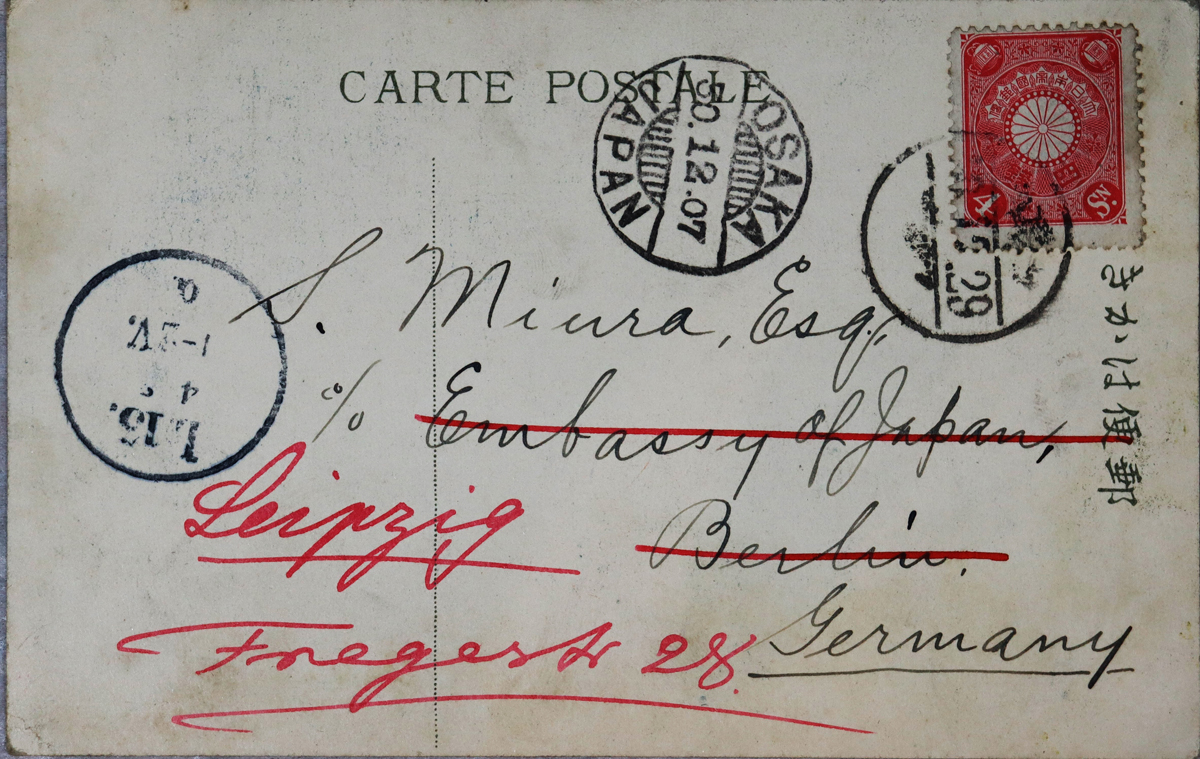 CARTE POSTALE
OSAKA
30.12.07
JAPAN
4
Sn.
29
きかは便郵
S. Miura, Esq,
% Embassy of Japan,
Berlin.
Germany
Leipzig
Fregestr 28.
L 13.
4
1-2V.
a